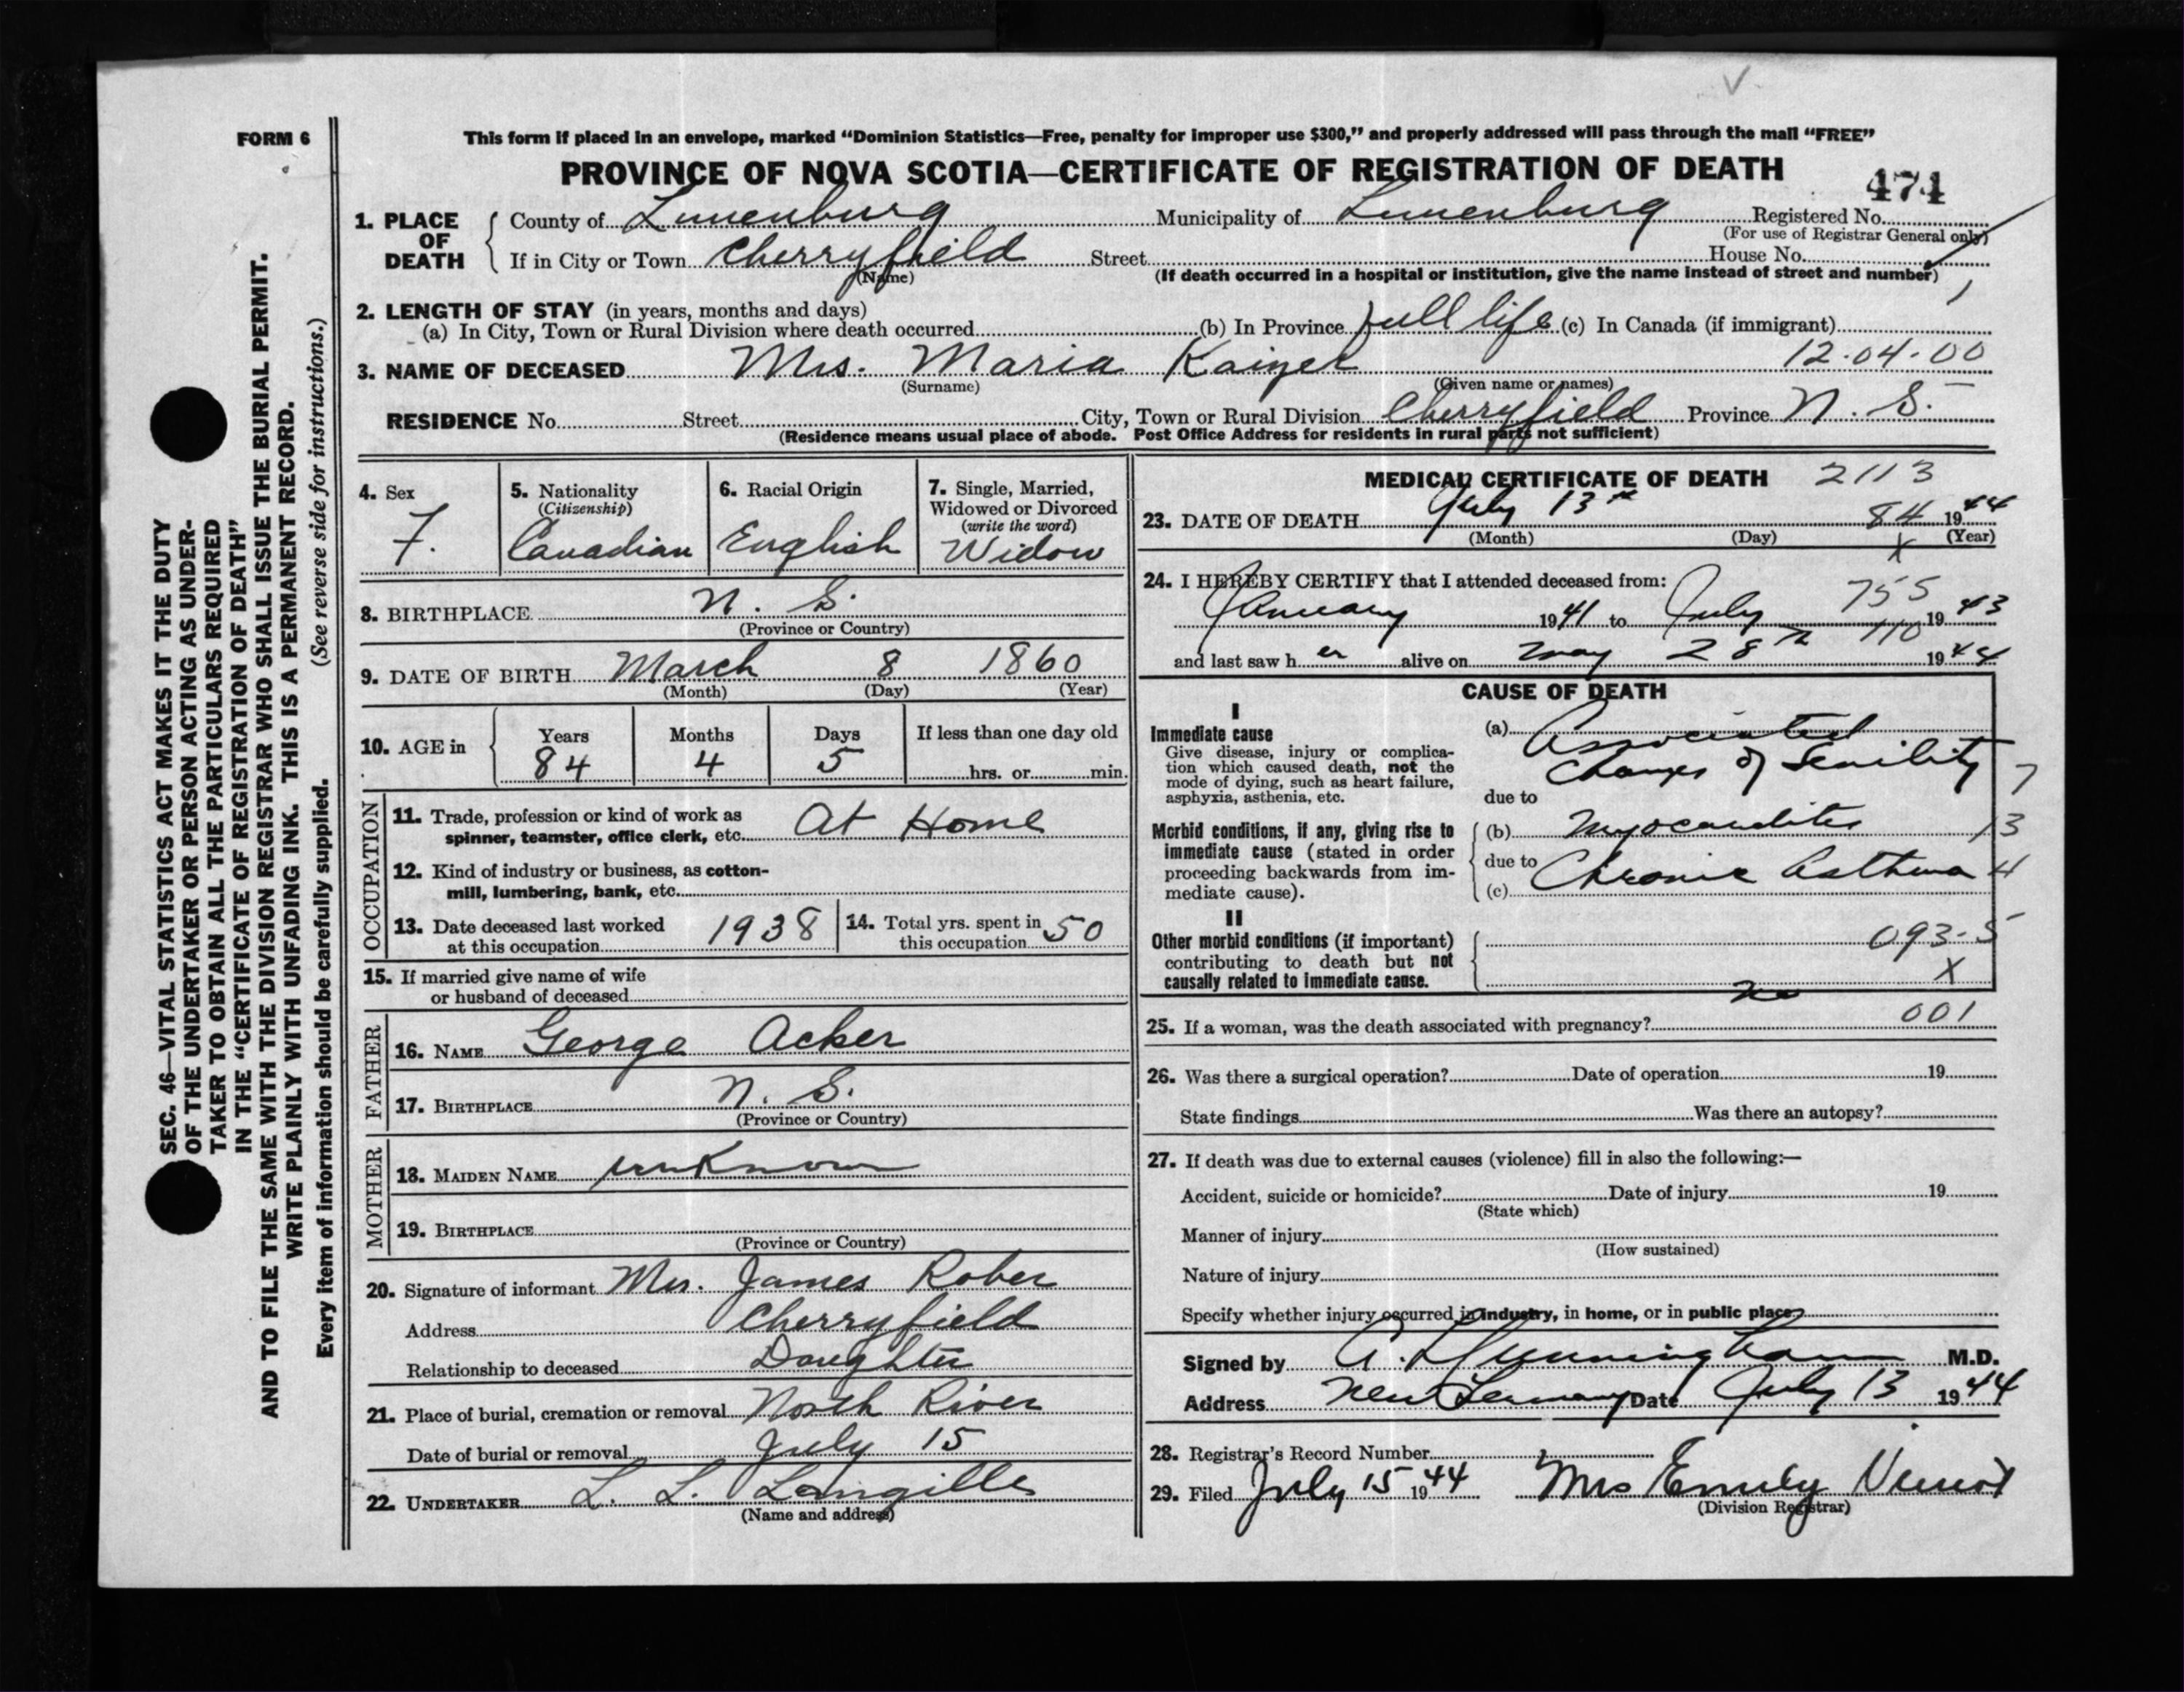 FORM 6
This form if placed in an envelope, marked “Dominion Statistics—Free, penalty for improper use $300,” and properly addressed will pass through the mail “FREE”
PROVINCE OF NOVA SCOTIA—CERTIFICATE OF REGISTRATION OF DEATH
474
1. PLACE OF DEATH
County of Lunenburg Municipality of Lunenburg Registered No.
(For use of Registrar General only)
If in City or Town Cherryfield Street House No.
(Name) (If death occurred in a hospital or institution, give the name instead of street and number)
2. LENGTH OF STAY (in years, months and days)
(a) In City, Town or Rural Division where death occurred (b) In Province full life (c) In Canada (if immigrant)
3. NAME OF DECEASED Mrs. Maria Kaizer 12-04-00
(Surname) (Given name or names)
RESIDENCE No. Street City, Town or Rural Division Cherryfield Province N. S.
(Residence means usual place of abode. Post Office Address for residents in rural parts not sufficient)
4. Sex
F.
5. Nationality
(Citizenship)
Canadian
6. Racial Origin
English
7. Single, Married,
Widowed or Divorced
(write the word)
Widow
8. BIRTHPLACE N. S.
(Province or Country)
9. DATE OF BIRTH March 8 1860
(Month) (Day) (Year)
10. AGE in
Years Months Days If less than one day old
84 4 5 hrs. or min.
OCCUPATION
11. Trade, profession or kind of work as
spinner, teamster, office clerk, etc. At Home
12. Kind of industry or business, as cotton-
mill, lumbering, bank, etc.
13. Date deceased last worked
at this occupation 1938
14. Total yrs. spent in
this occupation 50
15. If married give name of wife
or husband of deceased
FATHER
16. NAME George Acker
17. BIRTHPLACE N. S.
(Province or Country)
MOTHER
18. MAIDEN NAME unknown
19. BIRTHPLACE
(Province or Country)
20. Signature of informant Mrs. James Rober
Address Cherryfield
Relationship to deceased Daughter
21. Place of burial, cremation or removal North River
Date of burial or removal July 15
22. UNDERTAKER L. L. Langille
(Name and address)
MEDICAL CERTIFICATE OF DEATH 2113
23. DATE OF DEATH July 13th 84 1944
(Month) (Day) X (Year)
24. I HEREBY CERTIFY that I attended deceased from: 755
January 1941 to July 1943
110
and last saw her alive on May 28th 1944
CAUSE OF DEATH
I
Immediate cause
Give disease, injury or complica-
tion which caused death, not the
mode of dying, such as heart failure,
asphyxia, asthenia, etc.
(a) Associated
Changes of Senility 7
due to
Morbid conditions, if any, giving rise to
immediate cause (stated in order
proceeding backwards from im-
mediate cause).
(b) Myocarditis 13
due to
(c) Chronic Asthma 4
II
Other morbid conditions (if important)
contributing to death but not
causally related to immediate cause.
093-5
X
25. If a woman, was the death associated with pregnancy? no 001
26. Was there a surgical operation? Date of operation 19
State findings Was there an autopsy?
27. If death was due to external causes (violence) fill in also the following:—
Accident, suicide or homicide? Date of injury 19
(State which)
Manner of injury
(How sustained)
Nature of injury
Specify whether injury occurred in industry, in home, or in public place
Signed by M.D.
Address New Germany Date July 13 1944
28. Registrar's Record Number
29. Filed July 15 1944 Mrs Emily
(Division Registrar)
SEC. 46—VITAL STATISTICS ACT MAKES IT THE DUTY
OF THE UNDERTAKER OR PERSON ACTING AS UNDER-
TAKER TO OBTAIN ALL THE PARTICULARS REQUIRED
IN THE “CERTIFICATE OF REGISTRATION OF DEATH”
AND TO FILE THE SAME WITH THE DIVISION REGISTRAR WHO SHALL ISSUE THE BURIAL PERMIT.
WRITE PLAINLY WITH UNFADING INK. THIS IS A PERMANENT RECORD.
Every item of information should be carefully supplied. (See reverse side for instructions.)